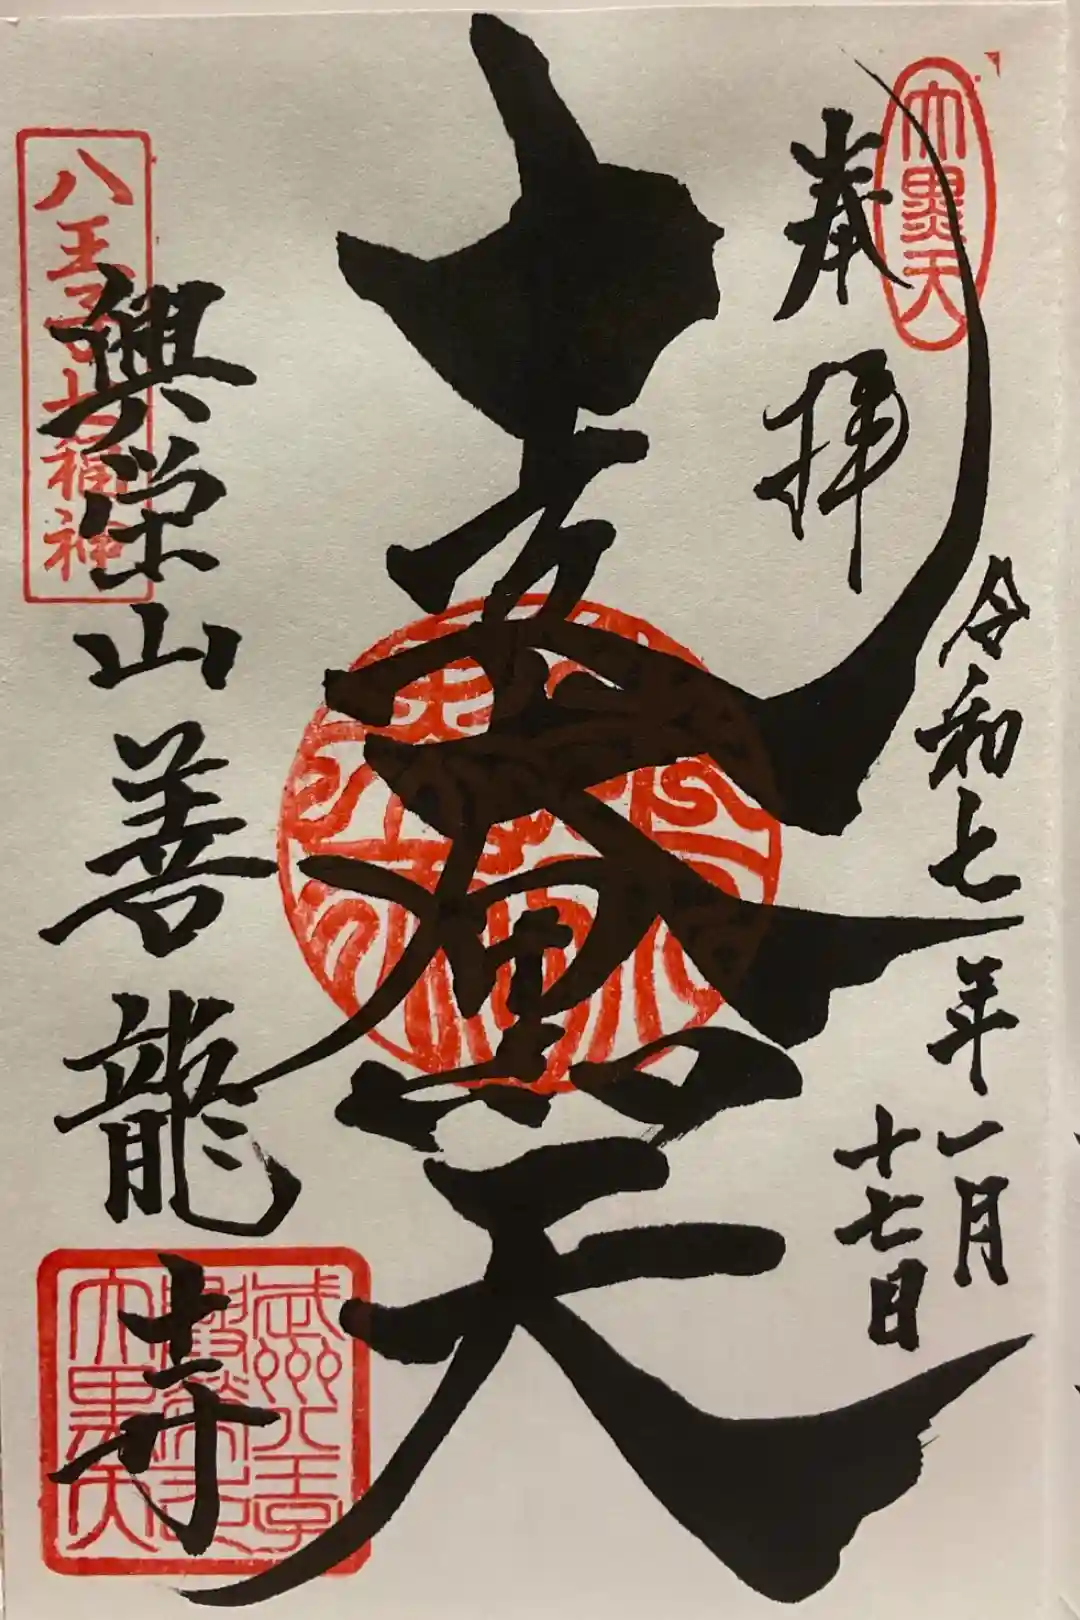 大黒天
奉拝
令和七年一月
十七日
走大黒天
八王子七福神
興栄山善龍寺
武州八王子
大黒天